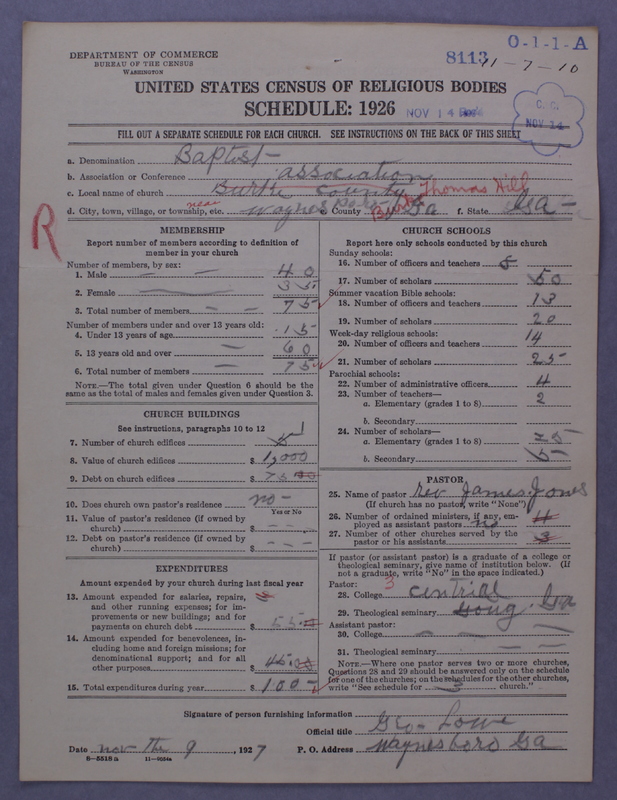 DEPARTMENT OF COMMERCE
BUREAU OF THE CENSUS
WASHINGTON
8113
O-1-1-A
11-7-10
UNITED STATES CENSUS OF RELIGIOUS BODIES
SCHEDULE: 1926
NOV 14
C. C.
NOV 14
FILL OUT A SEPARATE SCHEDULE FOR EACH CHURCH. SEE INSTRUCTIONS ON THE BACK OF THIS SHEET
a. Denomination Baptist
b. Association or Conference association
c. Local name of church Burke County Thomas Hill
d. City, town, village, or township, etc. near Waynesboro e. County Burke Ga f. State Ga
R
MEMBERSHIP
Report number of members according to definition of
member in your church
Number of members, by sex:
1. Male 40
2. Female 35
3. Total number of members 75
Number of members under and over 13 years old:
4. Under 13 years of age 15
5. 13 years old and over 60
6. Total number of members 75
NOTE.—The total given under Question 6 should be the
same as the total of males and females given under Question 3.
CHURCH BUILDINGS
See instructions, paragraphs 10 to 12
7. Number of church edifices 1
8. Value of church edifices $ 1,000
9. Debt on church edifices $ 75 00
10. Does church own pastor's residence no
Yes or No
11. Value of pastor's residence (if owned by
church) $
12. Debt on pastor's residence (if owned by
church) $
EXPENDITURES
Amount expended by your church during last fiscal year
13. Amount expended for salaries, repairs,
and other running expenses; for im-
provements or new buildings; and for
payments on church debt $ 55.00
14. Amount expended for benevolences, in-
cluding home and foreign missions; for
denominational support; and for all
other purposes $ 45.00
15. Total expenditures during year $ 100
CHURCH SCHOOLS
Report here only schools conducted by this church
Sunday schools:
16. Number of officers and teachers 5
17. Number of scholars 50
Summer vacation Bible schools:
18. Number of officers and teachers 13
19. Number of scholars 20
Week-day religious schools:
20. Number of officers and teachers 14
21. Number of scholars 25
Parochial schools:
22. Number of administrative officers 4
23. Number of teachers—
a. Elementary (grades 1 to 8) 2
b. Secondary
24. Number of scholars—
a. Elementary (grades 1 to 8) 25
b. Secondary 5
PASTOR
25. Name of pastor Rev James Jones
(If church has no pastor, write "None")
26. Number of ordained ministers, if any, em-
ployed as assistant pastors no 4
27. Number of other churches served by the
pastor or his assistants 3
If pastor (or assistant pastor) is a graduate of a college or
theological seminary, give name of institution below. (If
not a graduate, write "No" in the space indicated.)
Pastor: 3
28. College Central
29. Theological seminary Ga
Assistant pastor:
30. College
31. Theological seminary
NOTE.—Where one pastor serves two or more churches,
Questions 28 and 29 should be answered only on the schedule
for one of the churches; on the schedules for the other churches,
write "See schedule for 3 church."
Signature of person furnishing information
Official title Geo Lowe
Date nov the 9, 1927 P. O. Address Waynesboro Ga
8—5518a 11—9054a